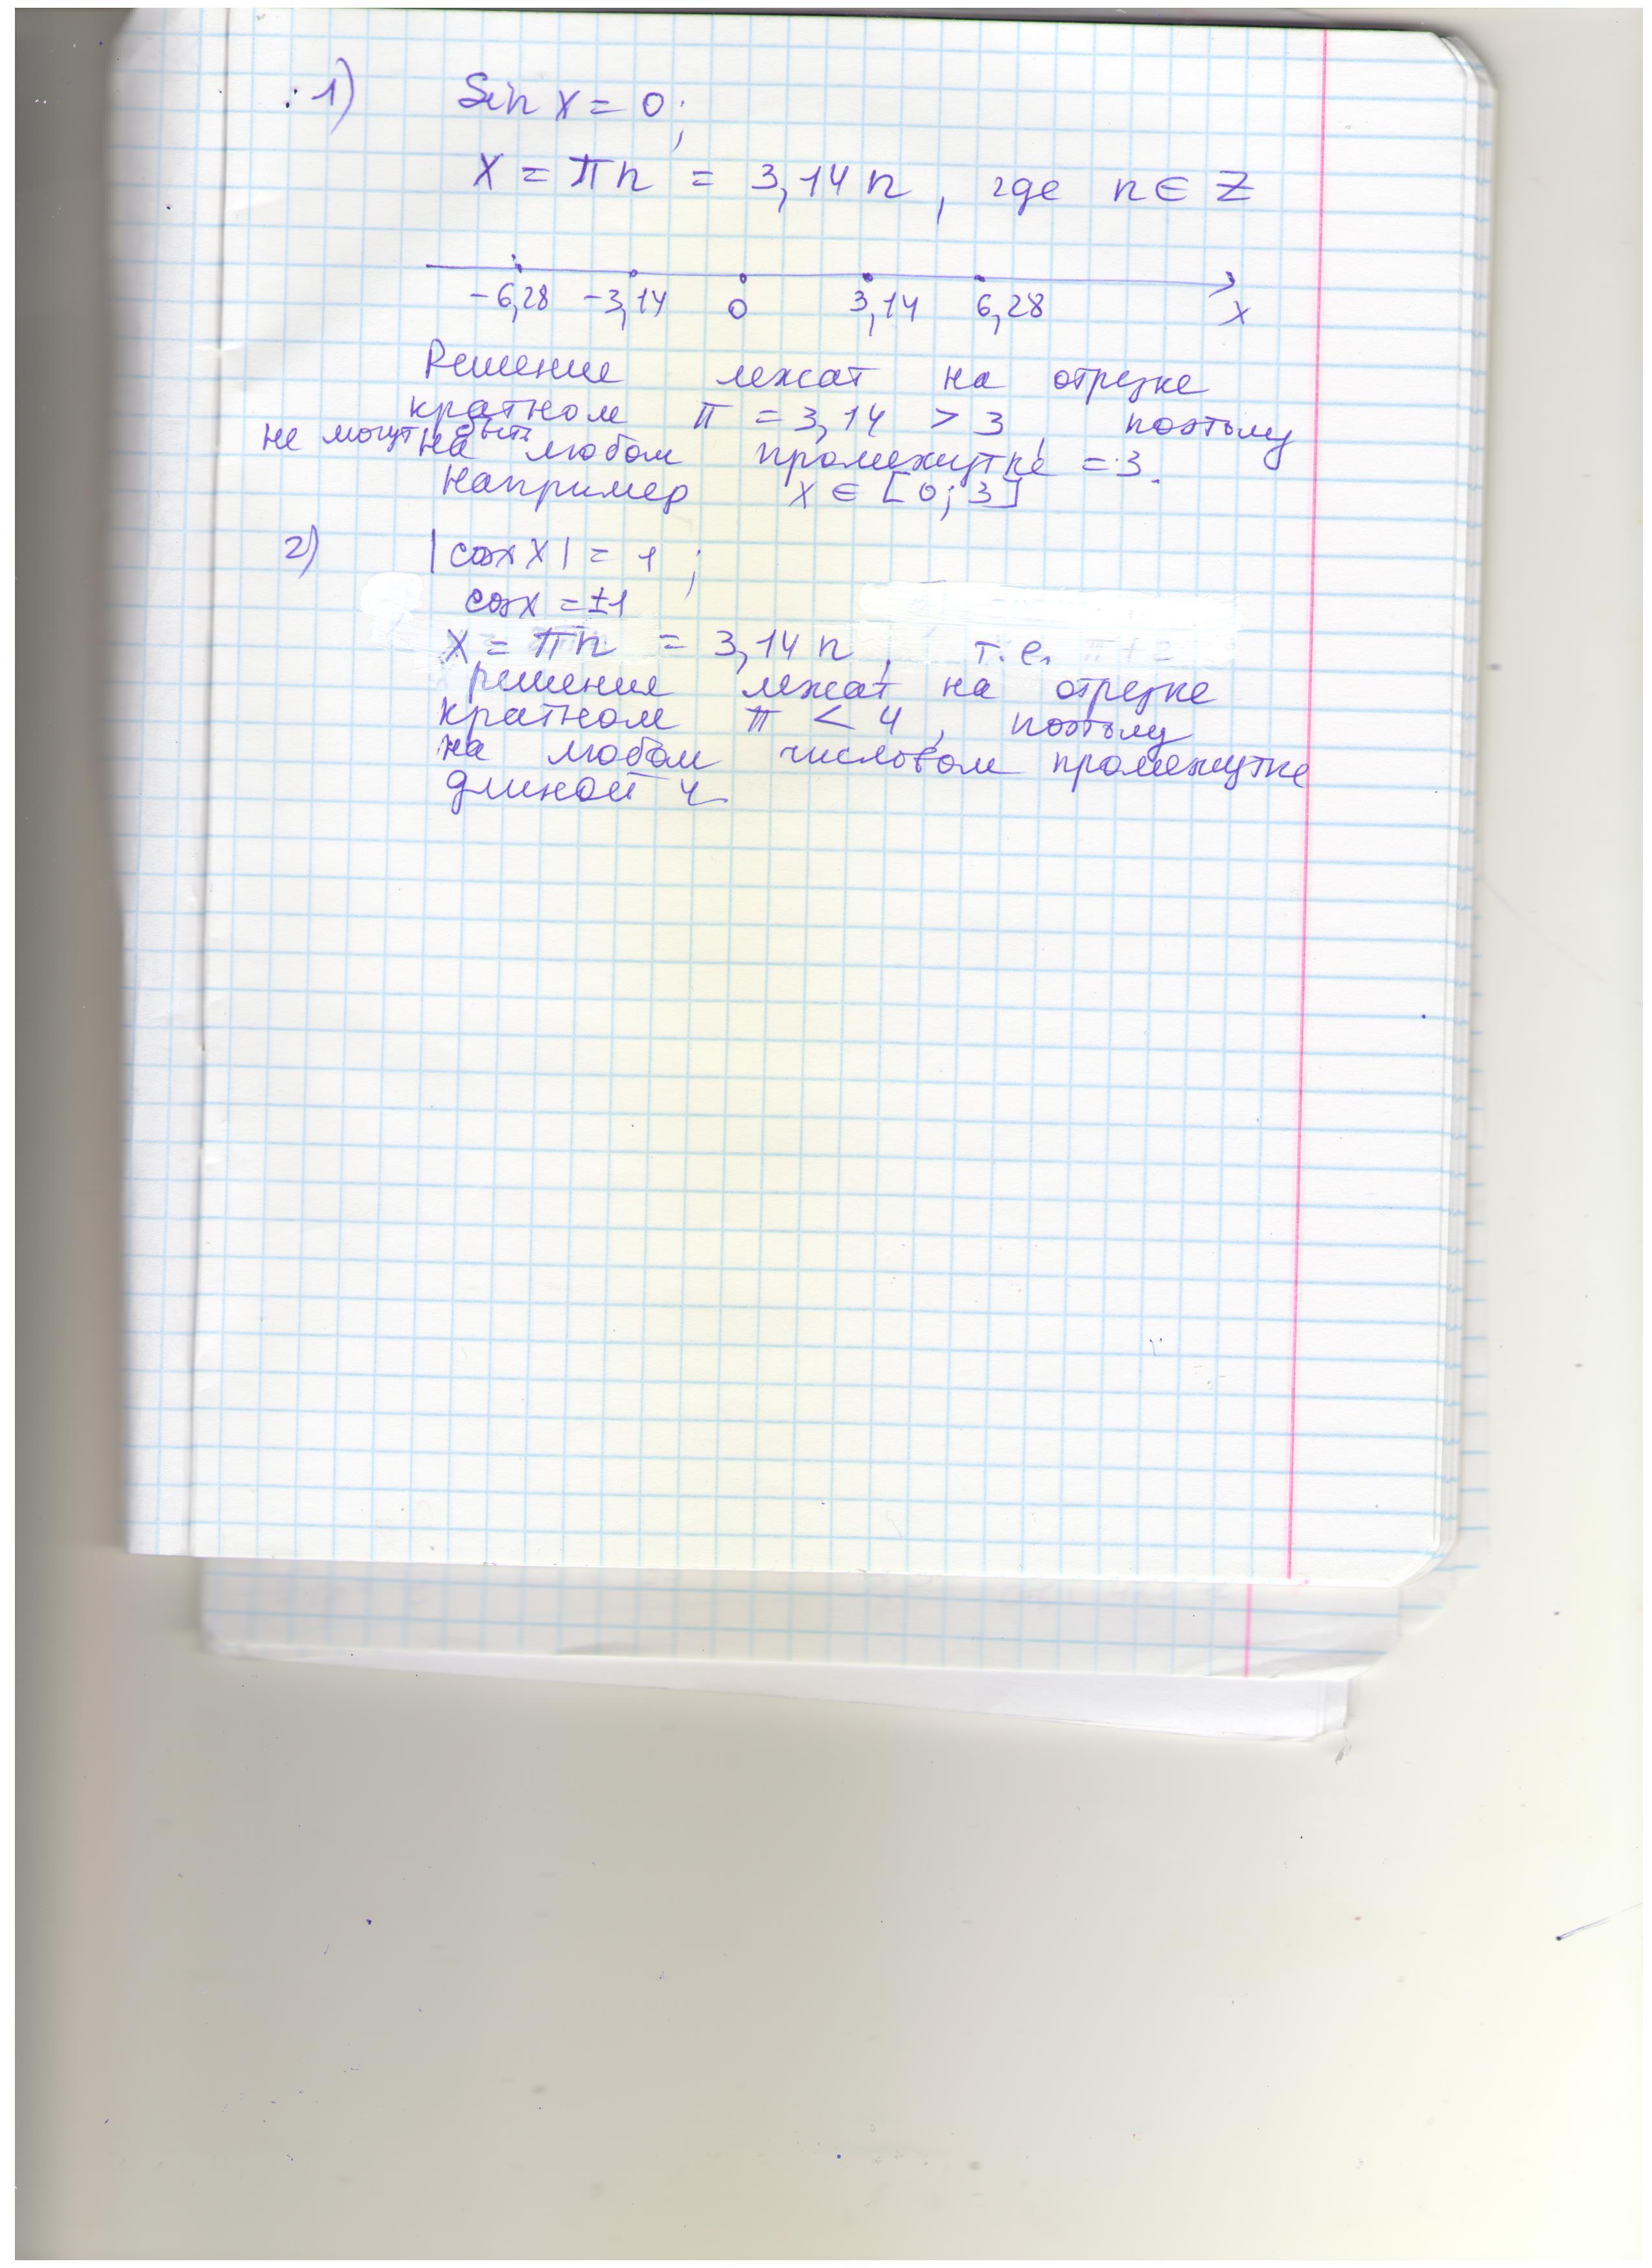 1) Sin x = 0;
x = πn = 3,14 n, где n ∈ Z
-6,28 -3,14 0 3,14 6,28 x
Решение лежат на отрезке
кратном π = 3,14 > 3, поэтому
не могут быть на любом промежутке = 3.
Например x ∈ [0; 3]
2) |cos x| = 1;
cos x = ±1
x = πn = 3,14 n, т.е.
решение лежат на отрезке
кратном π < 4, поэтому
на любом числовом промежутке
длиной 4